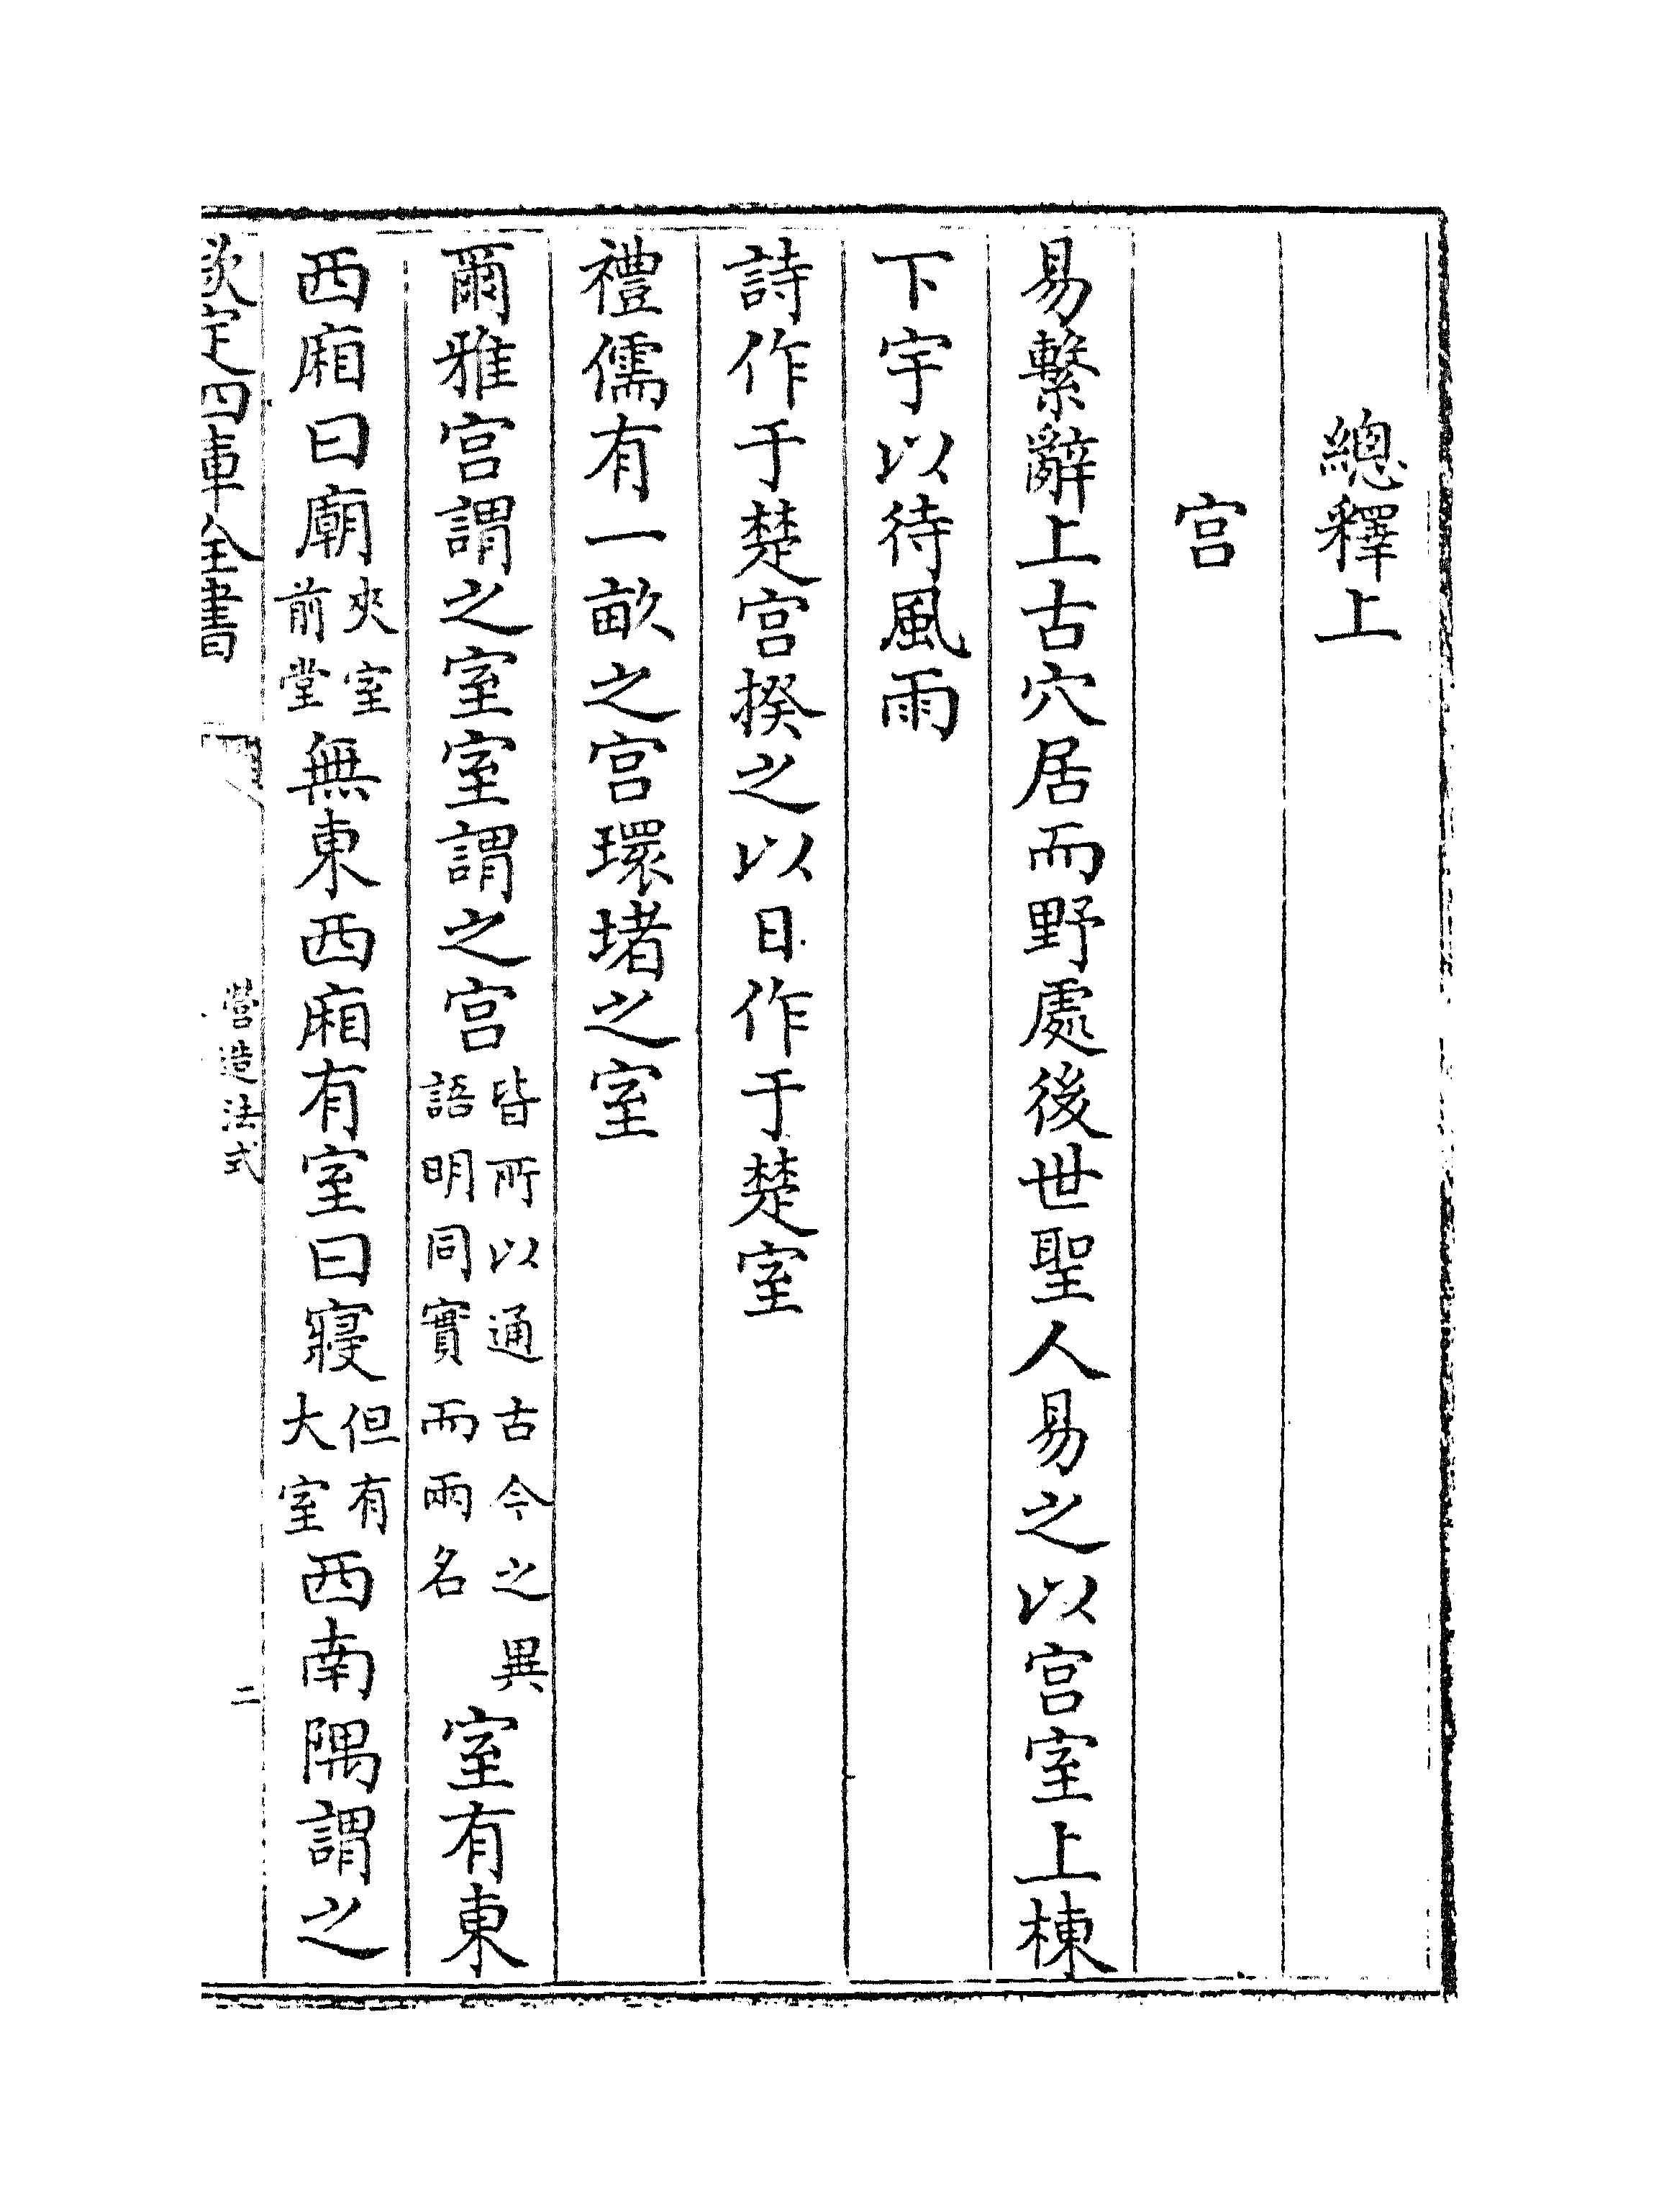 總釋上
宫
易繫辭上古穴居而野處後世聖人易之以宫室上棟
下宇以待風雨
詩作于楚宫揆之以日作于楚室
禮儒有一畝之宫環堵之室
爾雅宫謂之室室謂之宫皆所以通古今之異語明同實而兩名室有東
西廂曰廟夾室前堂無東西廂有室曰寢但有大室西南隅謂之
欽定四庫全書
營造法式
二